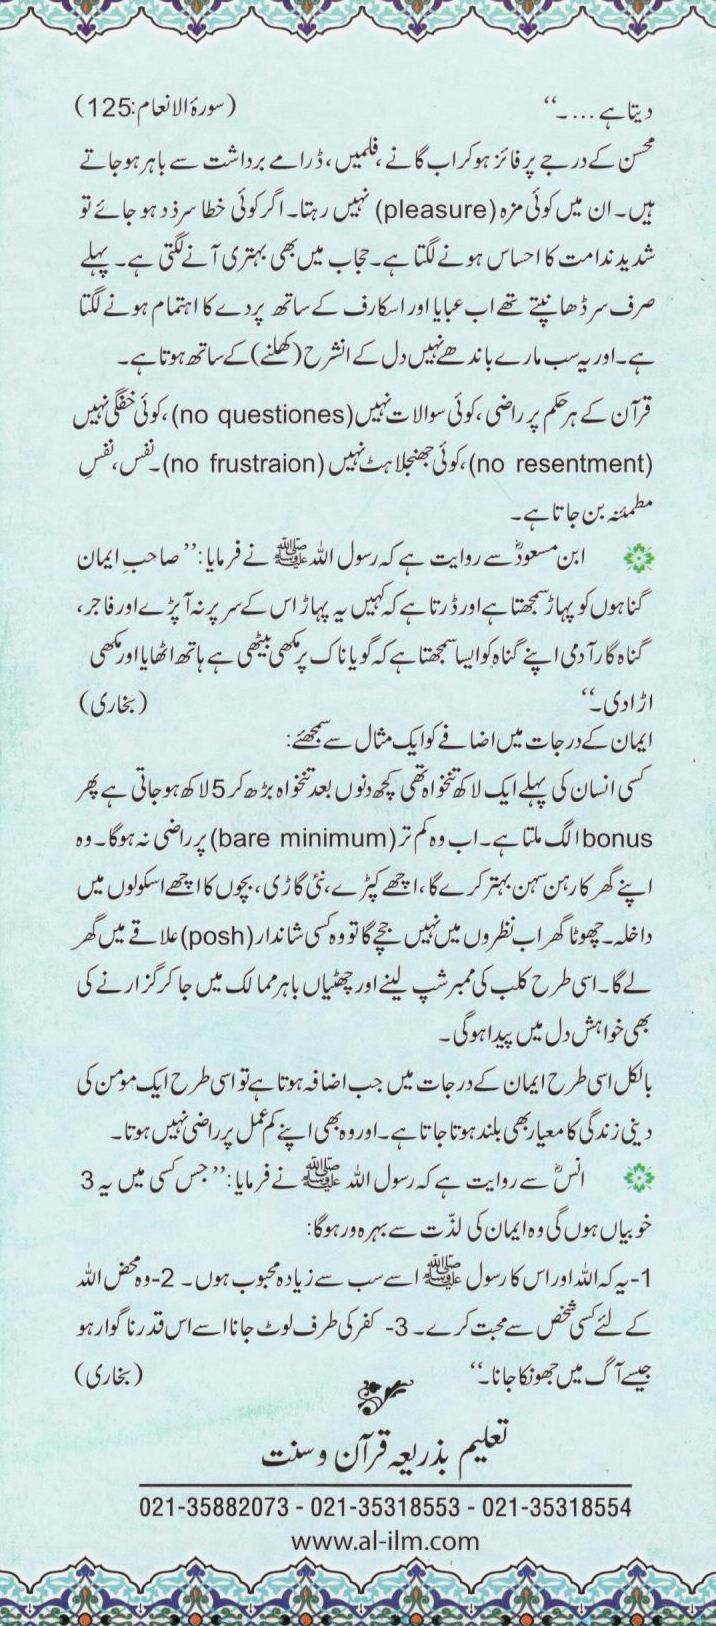 دیتا ہے ....۔‘‘ (سورۃ الانعام:125)
محسن کے درجے پر فائز ہوکر اب گانے، فلمیں، ڈرامے برداشت سے باہر ہوجاتے
ہیں۔ ان میں کوئی مزہ (pleasure) نہیں رہتا۔ اگر کوئی خطا سرذد ہو جائے تو
شدید ندامت کا احساس ہونے لگتا ہے۔ حجاب میں بھی بہتری آنے لگتی ہے۔ پہلے
صرف سر ڈھانپتے تھے اب عبایا اور اسکارف کے ساتھ پردے کا اہتمام ہونے لگتا
ہے۔ اور یہ سب مارے باندھے نہیں دل کے انشرح (کھلنے) کے ساتھ ہوتا ہے۔
قرآن کے ہر حکم پر راضی، کوئی سوالات نہیں (no questiones)، کوئی خفگی نہیں
(no resentment)، کوئی جھنجلاہٹ نہیں (no frustraion)۔ نفس، نفسِ
مطمئنہ بن جاتا ہے۔
ابن مسعودؓ سے روایت ہے کہ رسول اللہ ﷺ نے فرمایا: ’’صاحبِ ایمان
گناہوں کو پہاڑ سمجھتا ہے اور ڈرتا ہے کہ کہیں یہ پہاڑ اس کے سر پر نہ آ پڑے اور فاجر،
گناہ گار آدمی اپنے گناہ کو ایسا سمجھتا ہے کہ گویا ناک پر مکھی بیٹھی ہے ہاتھ اٹھایا اور مکھی
اڑادی۔‘‘ (بخاری)
ایمان کے درجات میں اضافے کو ایک مثال سے سمجھئے:
کسی انسان کی پہلے ایک لاکھ تنخواہ تھی کچھ دنوں بعد تنخواہ بڑھ کر 5 لاکھ ہوجاتی ہے پھر
bonus الگ ملتا ہے۔ اب وہ کم تر (bare minimum) پر راضی نہ ہوگا۔ وہ
اپنے گھر کا رہن سہن بہتر کرے گا، اچھے کپڑے، نئی گاڑی، بچوں کا اچھے اسکولوں میں
داخلہ۔ چھوٹا گھر اب نظروں میں نہیں جچے گا تو وہ کسی شاندار (posh) علاقے میں گھر
لے گا۔ اسی طرح کلب کی ممبر شپ لینے اور چھٹیاں باہر ممالک میں جا کر گزارنے کی
بھی خواہش دل میں پیدا ہوگی۔
بالکل اسی طرح ایمان کے درجات میں جب اضافہ ہوتا ہے تو اسی طرح ایک مومن کی
دینی زندگی کا معیار بھی بلند ہوتا جاتا ہے۔ اور وہ بھی اپنے کم عمل پر راضی نہیں ہوتا۔
انسؓ سے روایت ہے کہ رسول اللہ ﷺ نے فرمایا: ’’جس کسی میں یہ 3
خوبیاں ہوں گی وہ ایمان کی لذّت سے بہرہ ور ہوگا:
1- یہ کہ اللہ اور اس کا رسول ﷺ اسے سب سے زیادہ محبوب ہوں۔ 2- وہ محض اللہ
کے لئے کسی شخص سے محبت کرے۔ 3- کفر کی طرف لوٹ جانا اسے اس قدر ناگوار ہو
جیسے آگ میں جھونکا جانا۔‘‘ (بخاری)
تعلیم بذریعہ قرآن و سنت
021-35882073 - 021-35318553 - 021-35318554
www.al-ilm.com